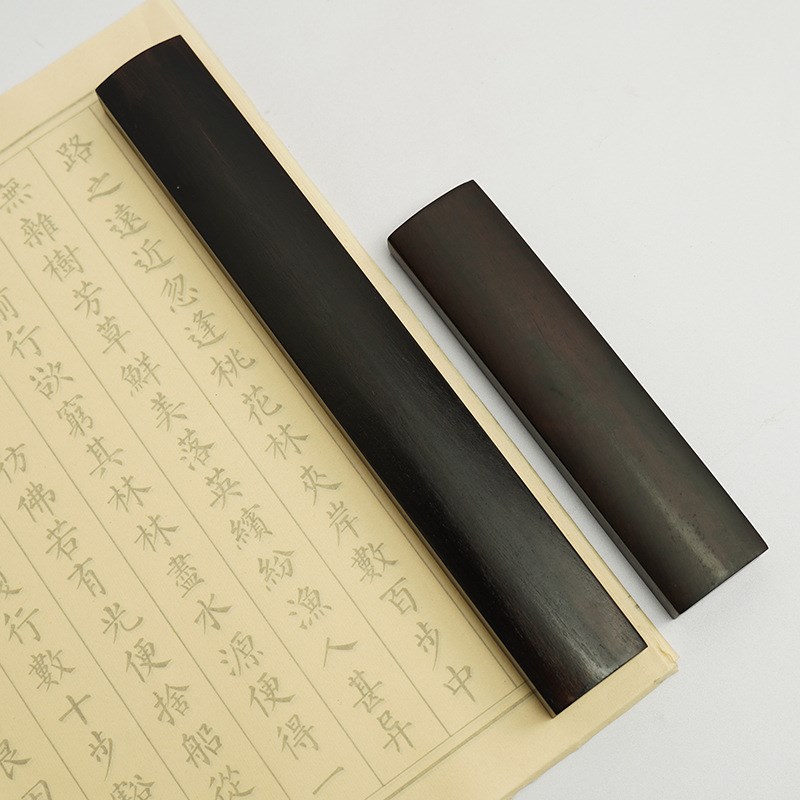 路之遠近忽逢桃花林夾岸數百步中
無雜樹芳草鮮美落英繽紛漁人甚异
前行欲窮其林林盡水源便得一
仿佛若有光便捨船從
行數十步豁
良